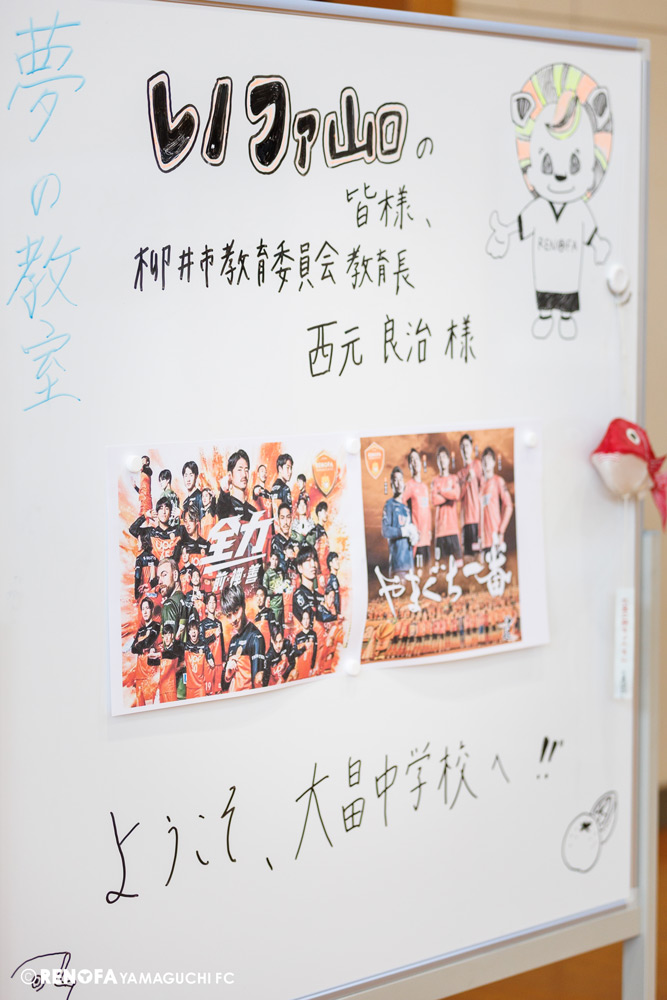 夢の教室
レノファ山口の
皆様、
柳井市教育委員会 教育長
西元 良治 様
RENOFA
全力
やまぐち一番
ようこそ、大畠中学校へ!!
© RENOFA YAMAGUCHI FC